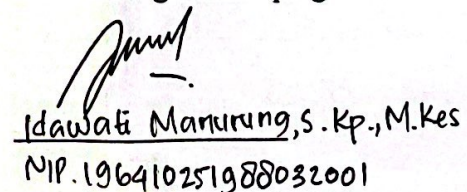 Idawati Manurung, S. Kp., M.Kes
NIP. 196410251988032001